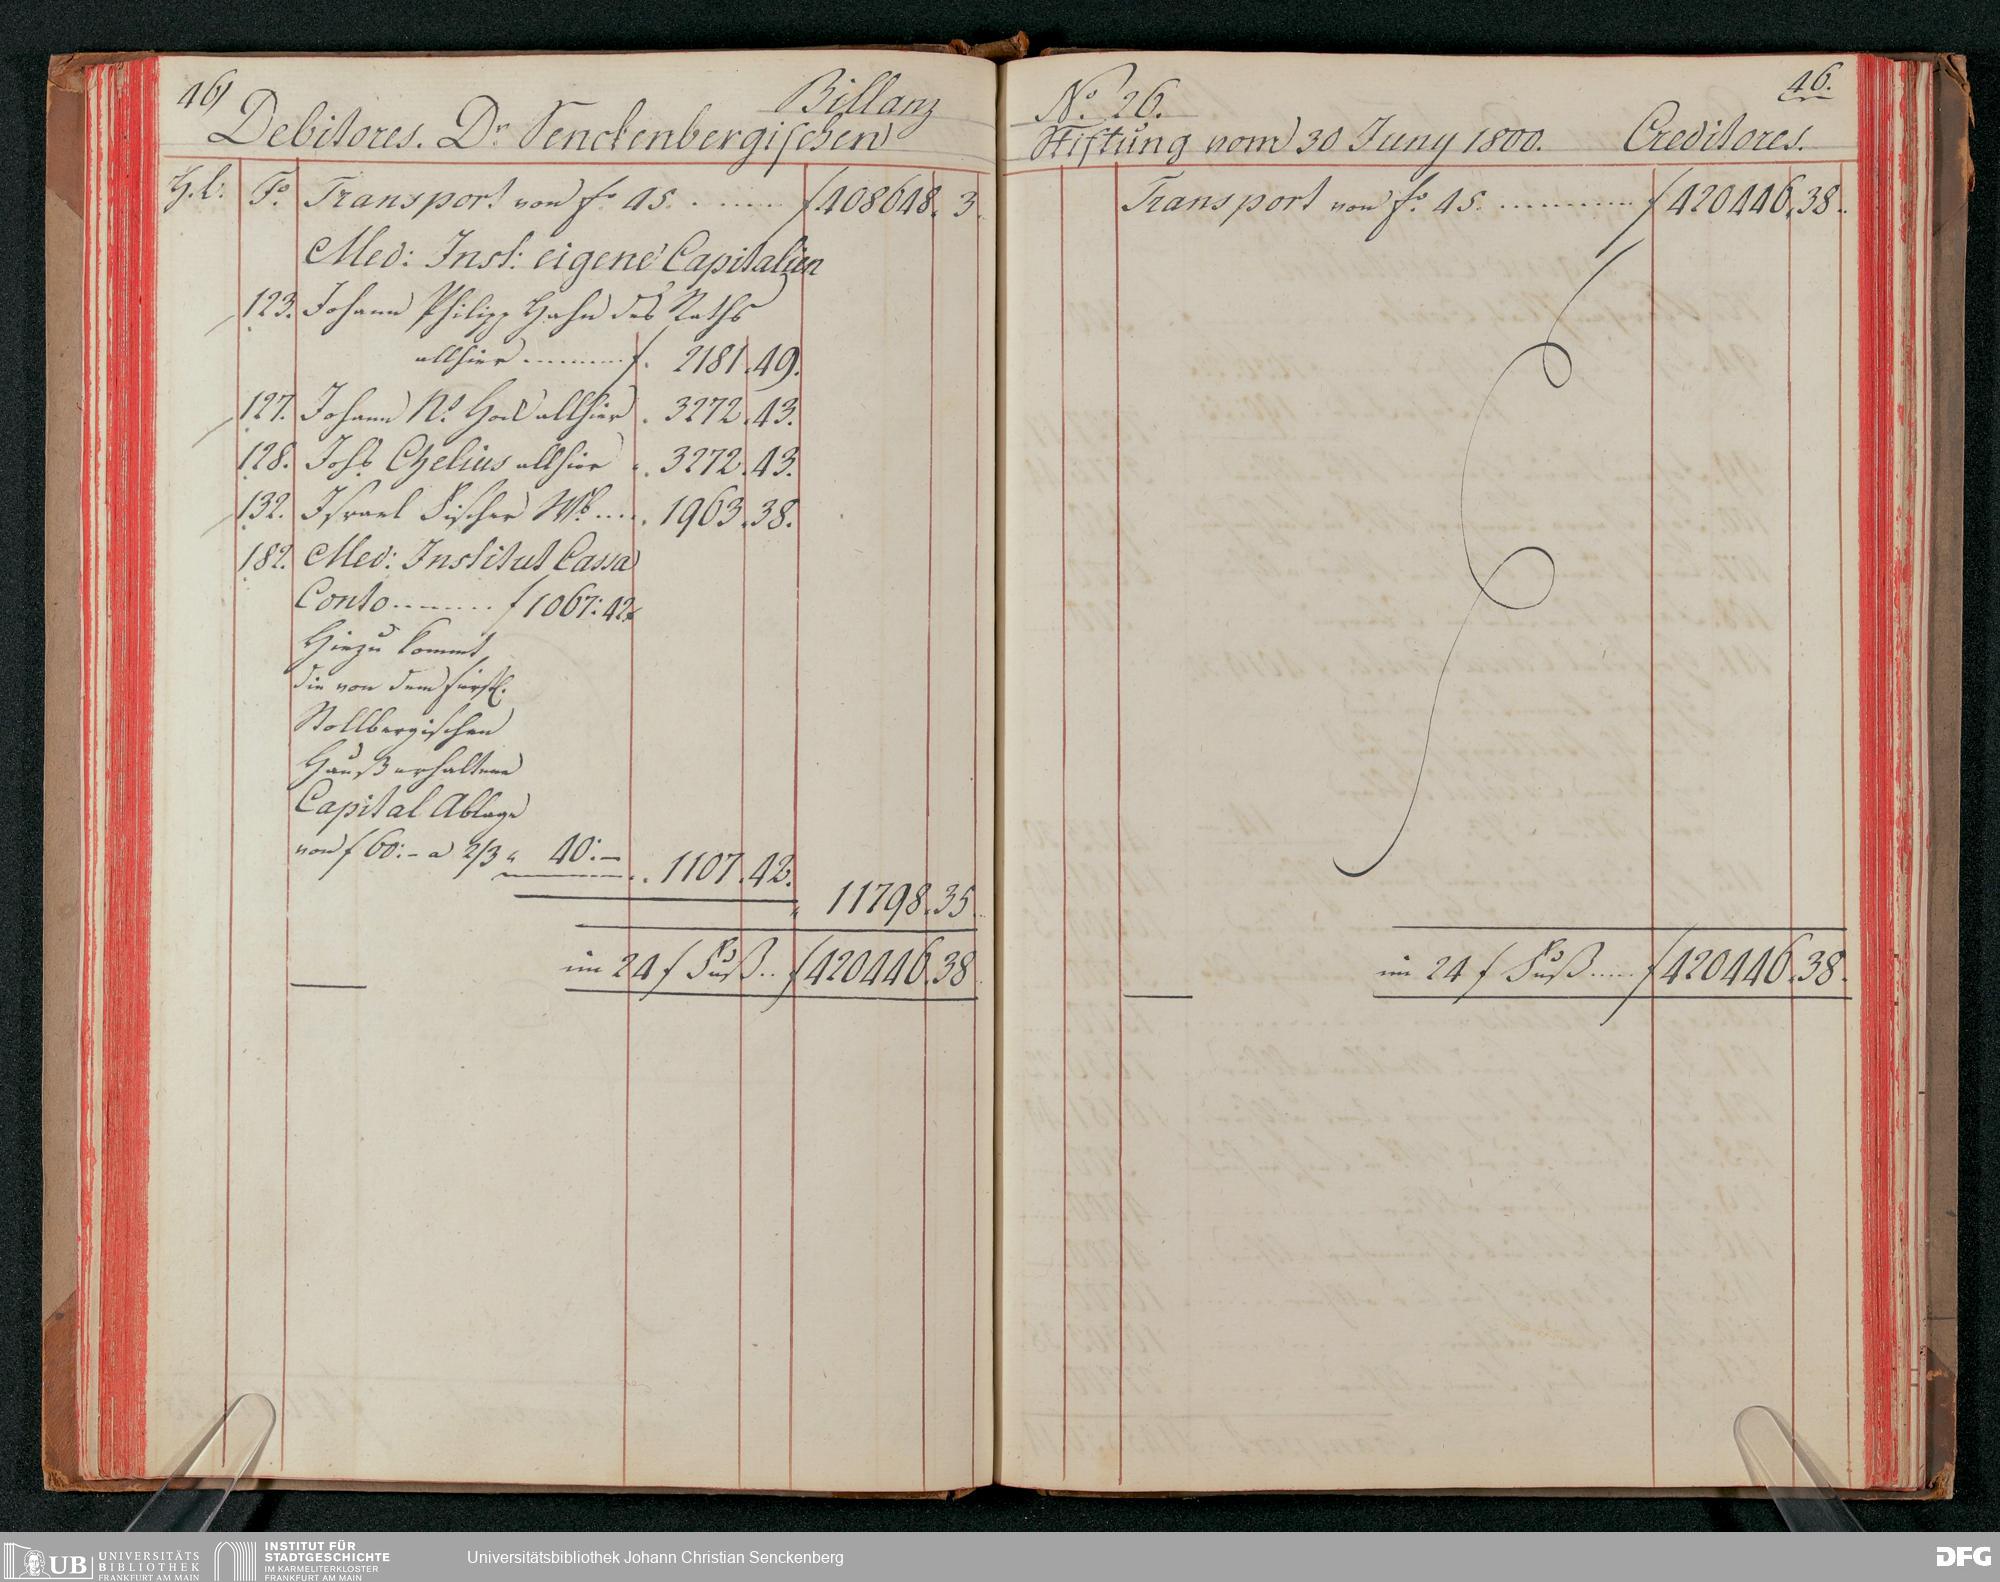 46
Billanz
Debitores. Dr Senckenbergischen
H.b: Fo. Transport von fo 45. ........ f 408648. 3.
Med: Inst: eigene Capitalien
123. Johann Philipp Hahn des Raths
allhier ......... f. 2181.49.
127. Johann Ns. allhier . 3272.43.
128. Johs Chelius allhier . 3272.43.
132. Israel Fischer Wb .... 1963.38.
182. Med: Institut Cassa
Conto........ f 1067:42x
Hinzu kommt
die von dem fürstl.
Stollbergischen
Hauß erhaltene
Capital Ablage
von f 60:- a 2/3 " 40:- .. 1107.42.
" 11798.35.
im 24 f Fuß.. f 420446.38
No. 26.
46.
Stiftung vom 30 Juny 1800. Creditores.
Transport von fo. 45. ............ f 420446.38..
im 24 f Fuß..... f 420446.38.
UB UNIVERSITÄTS
BIBLIOTHEK
FRANKFURT AM MAIN
INSTITUT FÜR
STADTGESCHICHTE
IM KARMELITERKLOSTER
FRANKFURT AM MAIN
Universitätsbibliothek Johann Christian Senckenberg
DFG